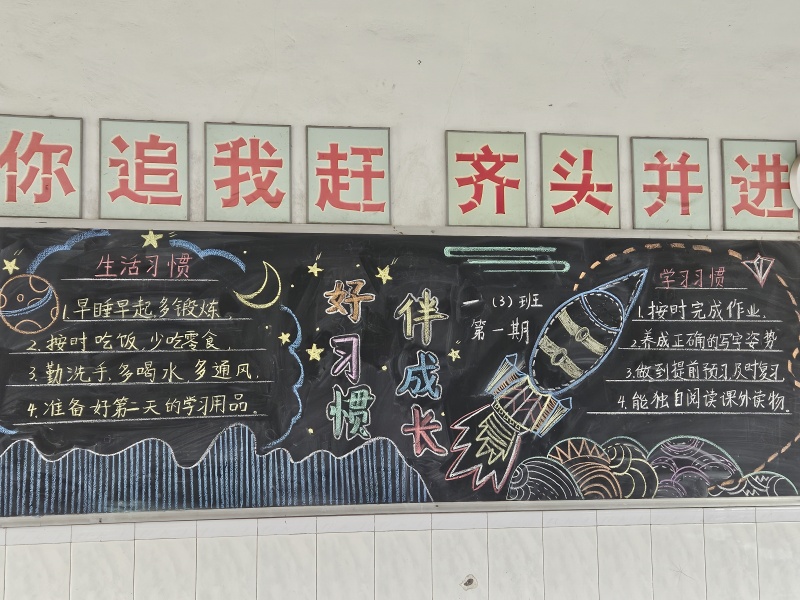 你追我赶 齐头并进
生活习惯
1.早睡早起,多锻炼。
2.按时吃饭,少吃零食。
3.勤洗手,多喝水,多通风。
4.准备好第二天的学习用品。
好习惯
伴成长
一(3)班
第一期
学习习惯
1.按时完成作业。
2.养成正确的写字姿势
3.做到提前预习及时复习
4.能独自阅读课外读物。